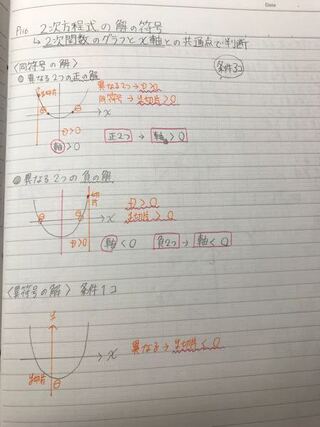 Date
2次方程式の解の符号
↳ 2次関数のグラフとx軸との共通点で判断
〈同符号の解〉
条件3コ
異なる2つの正の解
異なる2つ → D>0
同符号 → y切片>0
x
D>0
軸>0
正2つ → 軸>0
異なる2つの負の解
y切片
D>0
y切片>0
x
D>0
軸<0
負2つ → 軸<0
〈異符号の解〉 条件1コ
y
x
異なる → y切片<0
y切片